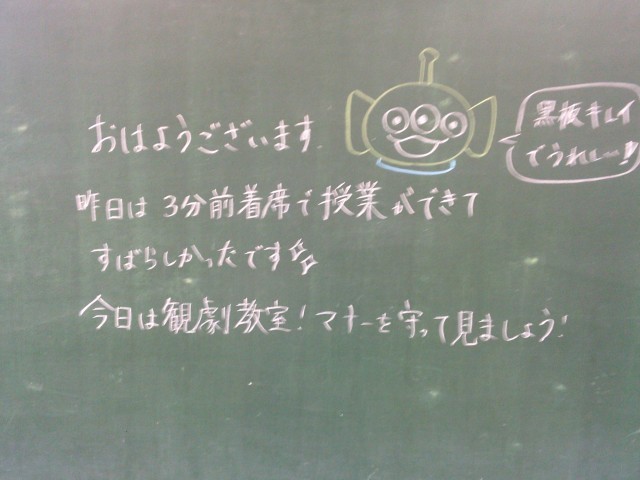 おはようございます
黒板キレイ
でうれしー!
昨日は 3分前着席で授業ができて
すばらしかったです
今日は観劇教室!マナーを守って見ましょう!